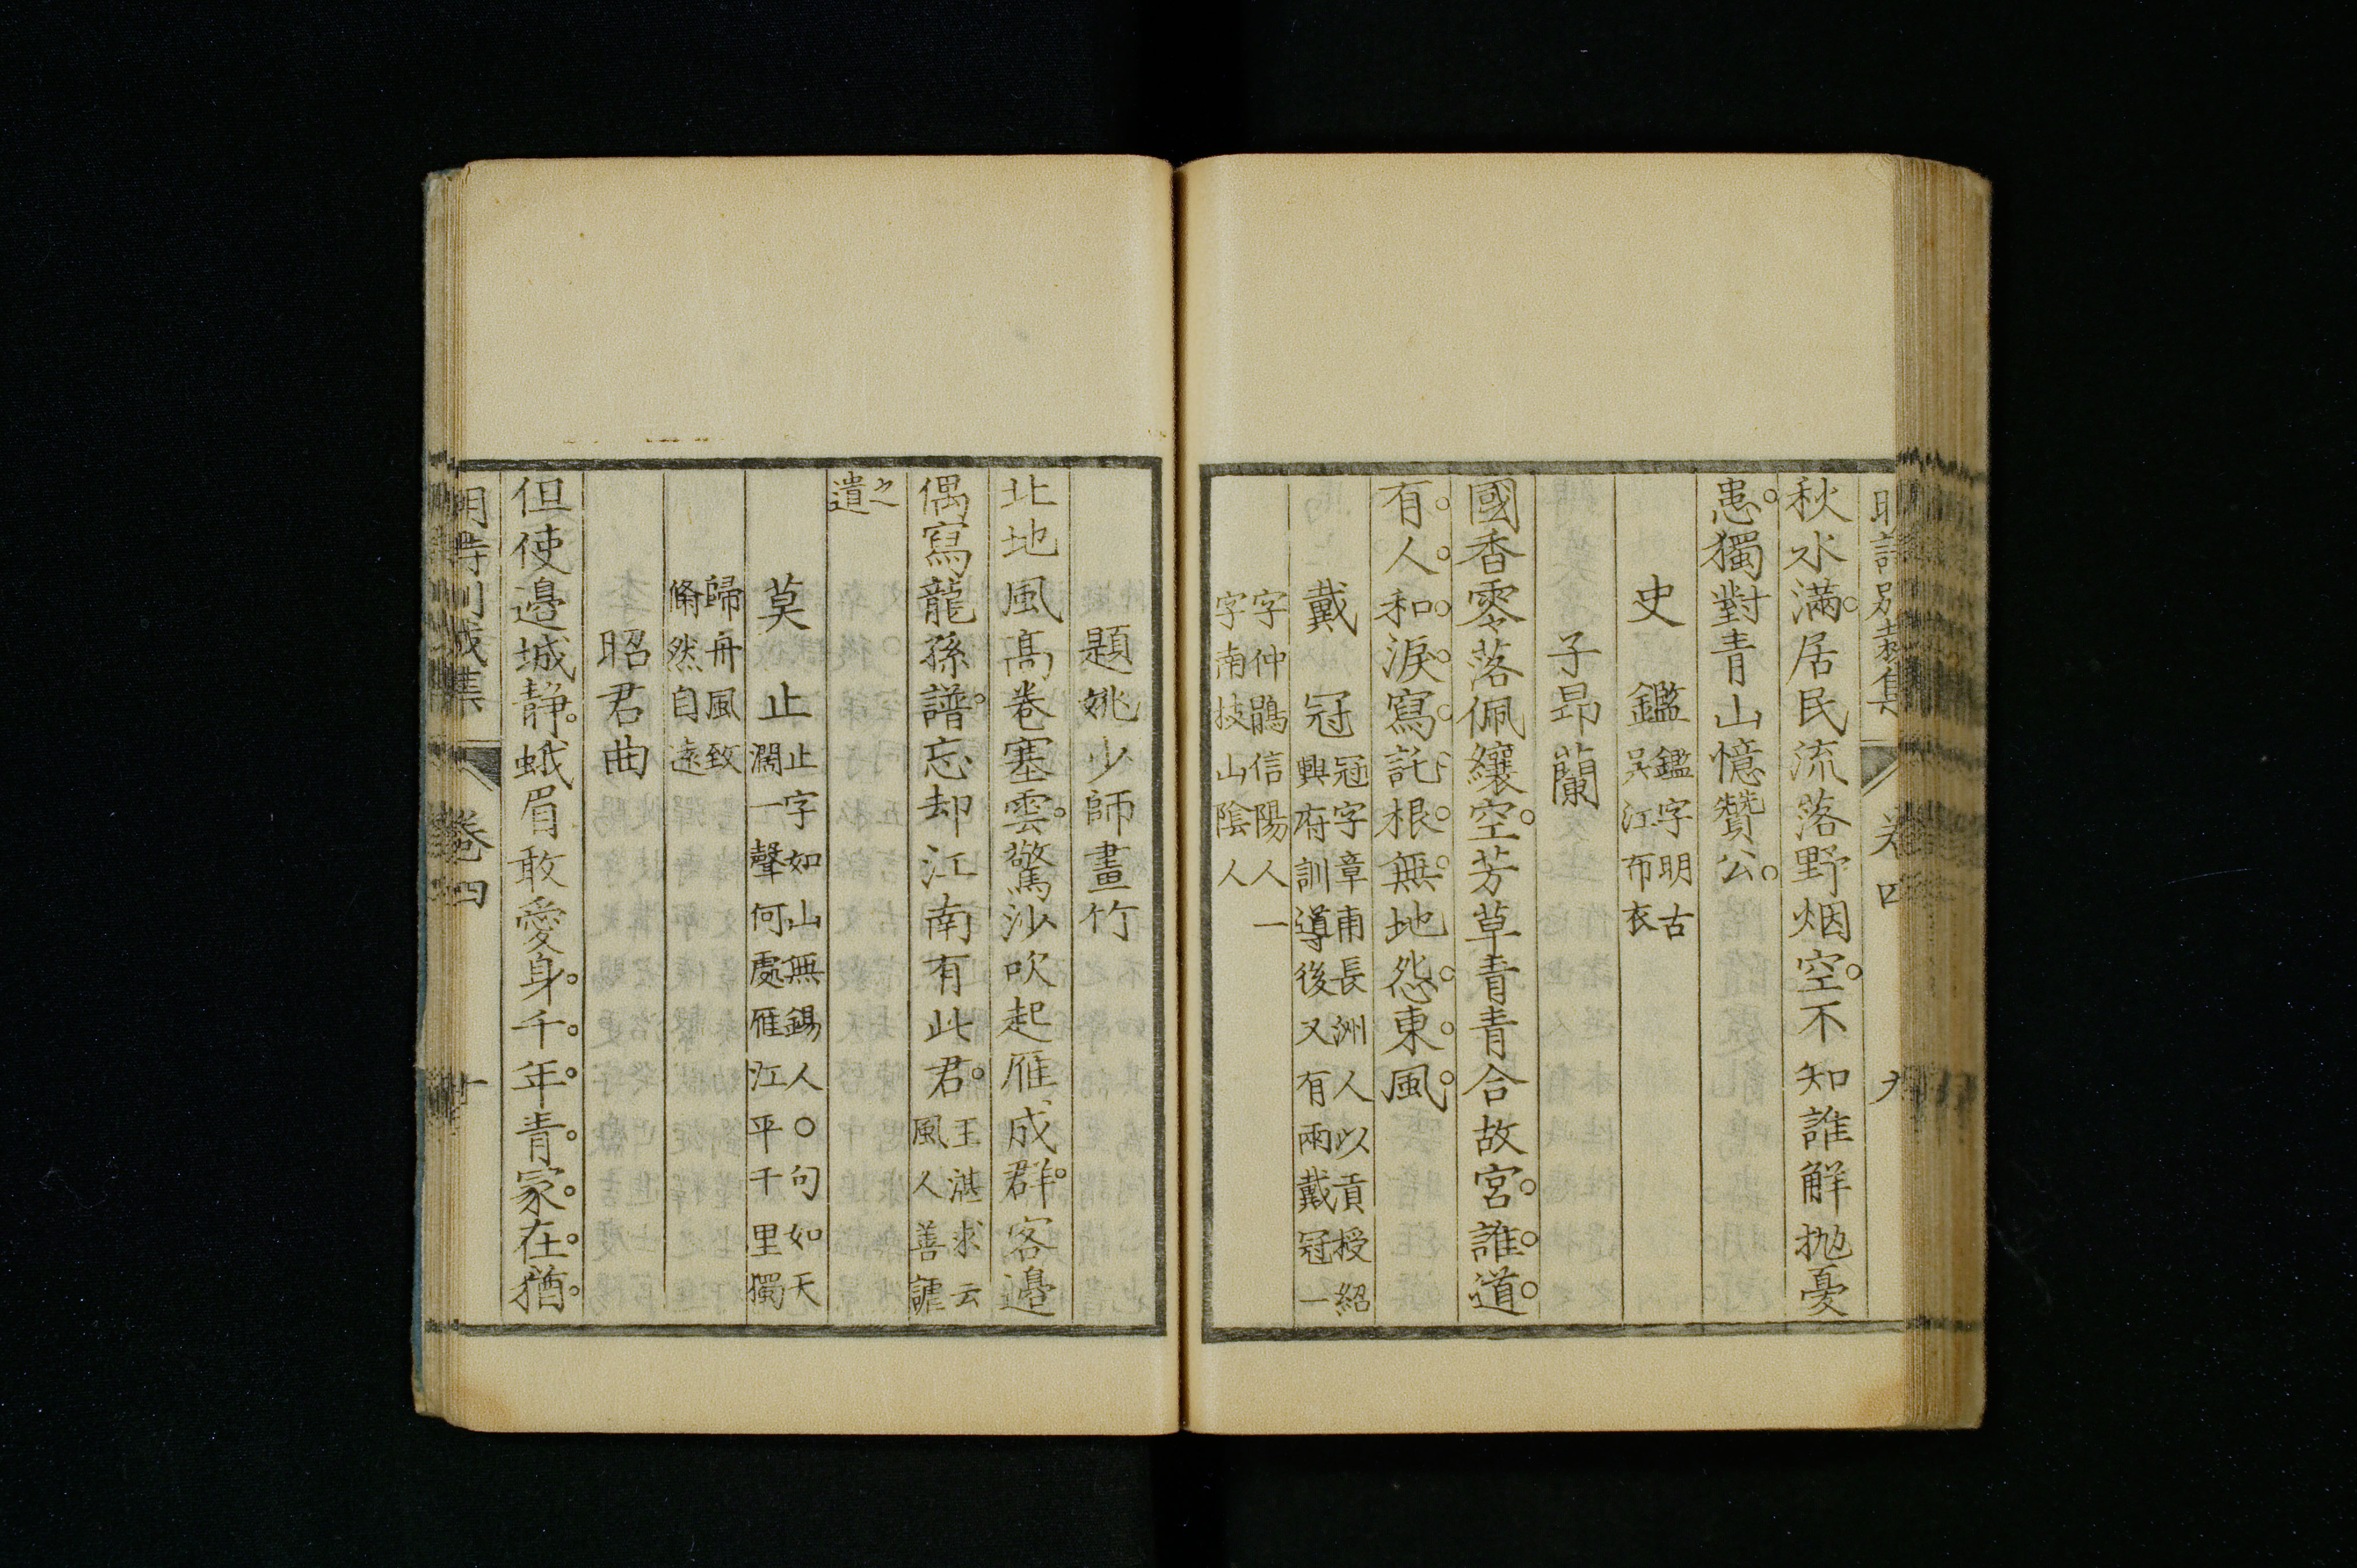 明詩別裁集 卷四 九
秋水滿居民流落野烟空不知誰解抛憂
患獨對青山憶贊公
史 鑑 鑑字明古
吳江布衣
子昂蘭
國香零落佩纕空芳草青青合故宮誰道
有人和淚寫託根無地怨東風
戴 冠 冠字章甫長洲人以貢授紹
興府訓導後又有兩戴冠一
字仲鶡信陽人一
字南技山陰人
題姚少師畫竹
北地風高卷塞雲驚沙吹起雁成群客邊
偶寫龍孫譜忘却江南有此君 王湛求云
風人善謔
之
遺
莫 止 止字如山無錫人〇句如天
濶一聲何處雁江平千里獨
歸舟風致
翛然自遠
昭君曲
但使邊城靜蛾眉敢愛身千年青冢在猶
明詩別裁集 卷四 十